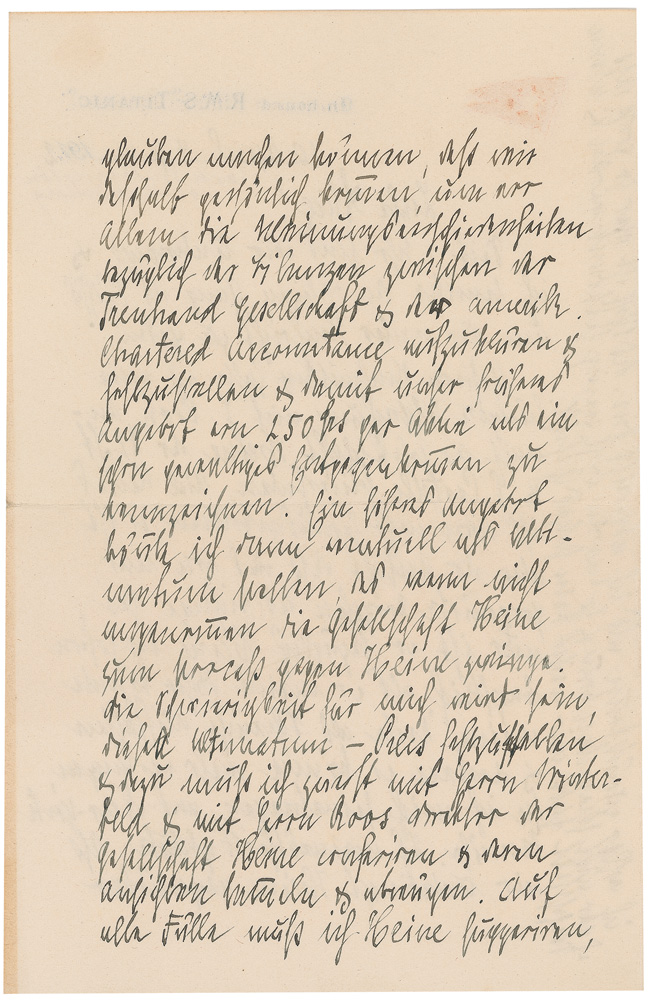 glauben machen können, daß wir
deßhalb persönlich kommen, um vor
Allem die Meinungsverschiedenheiten
bezüglich der Bilanzen zwischen der
Treuhand Gesellschaft & der amerik.
Chartered Accountance aufzuklären &
festzustellen & damit unser früheres
Angebot von 250 % per Aktie als ein
schon gewaltiges Entgegenkommen zu
kennzeichnen. Ein höheres Angebot
könnte ich dann eventuell als Ulti-
matum stellen, das wenn nicht
angenommen die Gesellschaft Heine
zum Process gegen Heine zwinge.
Die Schwierigkeit für mich wird sein,
dieses Ultimatum - Preis festzustellen
& dazu muß ich zuerst mit Herrn Winter-
feld & mit Herrn Roos Direktor der
Gesellschaft Heine conferiren & deren
Ansichten sammeln & abwägen. Auf
alle Fälle muß ich Heine suggeriren,